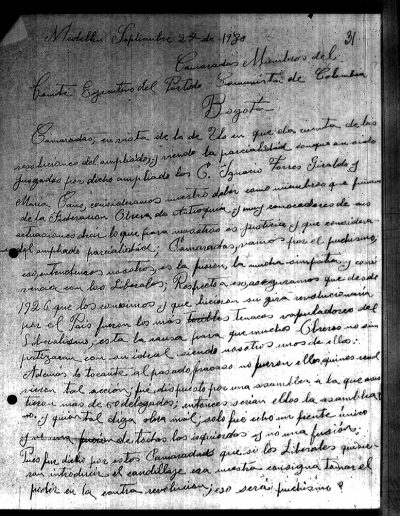 Medellín Septiembre 24 de 1930
31
Camaradas Miembros del
Comité Ejecutivo del Partido Comunista de Colombia
Bogotá
Camaradas, en vista de la de Uds en que dan cuenta de las
resoluciones del ampliado, y viendo la parcialidad conque an sido
jusgados por dicho ampliado los C. Ignacio Torres Giraldo y
María Cano, consideramos nuestro deber como miembros que fuimos
de la Federacion Obrera de Antioquia y muy conocedores de sus
actuaciones decir lo que para nosotros es justicia y que consideramos
del ampliado parcialidad; Camaradas, vamos por el puchismo,
eso, entendemos nosotros, es la fusion, la mucha simpatia y
con los Liberales; Respecto a eso, aseguramos que desde
1926 que los conocimos y que hicieron su gira revolucionaria
por el Pais fueron los más tenaces vapuladores del
Liberalismo, esta la causa para que muchos Obreros no sim
patizaran con su ideal siendo nosotros unos de ellos:
Ademas lo tocante al pasado proceso no fueron ellos quienes
tal accion, fue dispuesto por una asamblea a la que
mas de 60 delegados; entonces serian ellos la asamblea?
no, y quien tal diga obra mal, solo fue echo un frente unico
y no una fucion de todos los isquierdos y no una fusion;
Pues fue dicho por estos Camaradas que si los Liberales quisie-
ran introducir el caudillaje era nuestra consigna tomar el
poder en la contra revolucion; eso será puchismo?